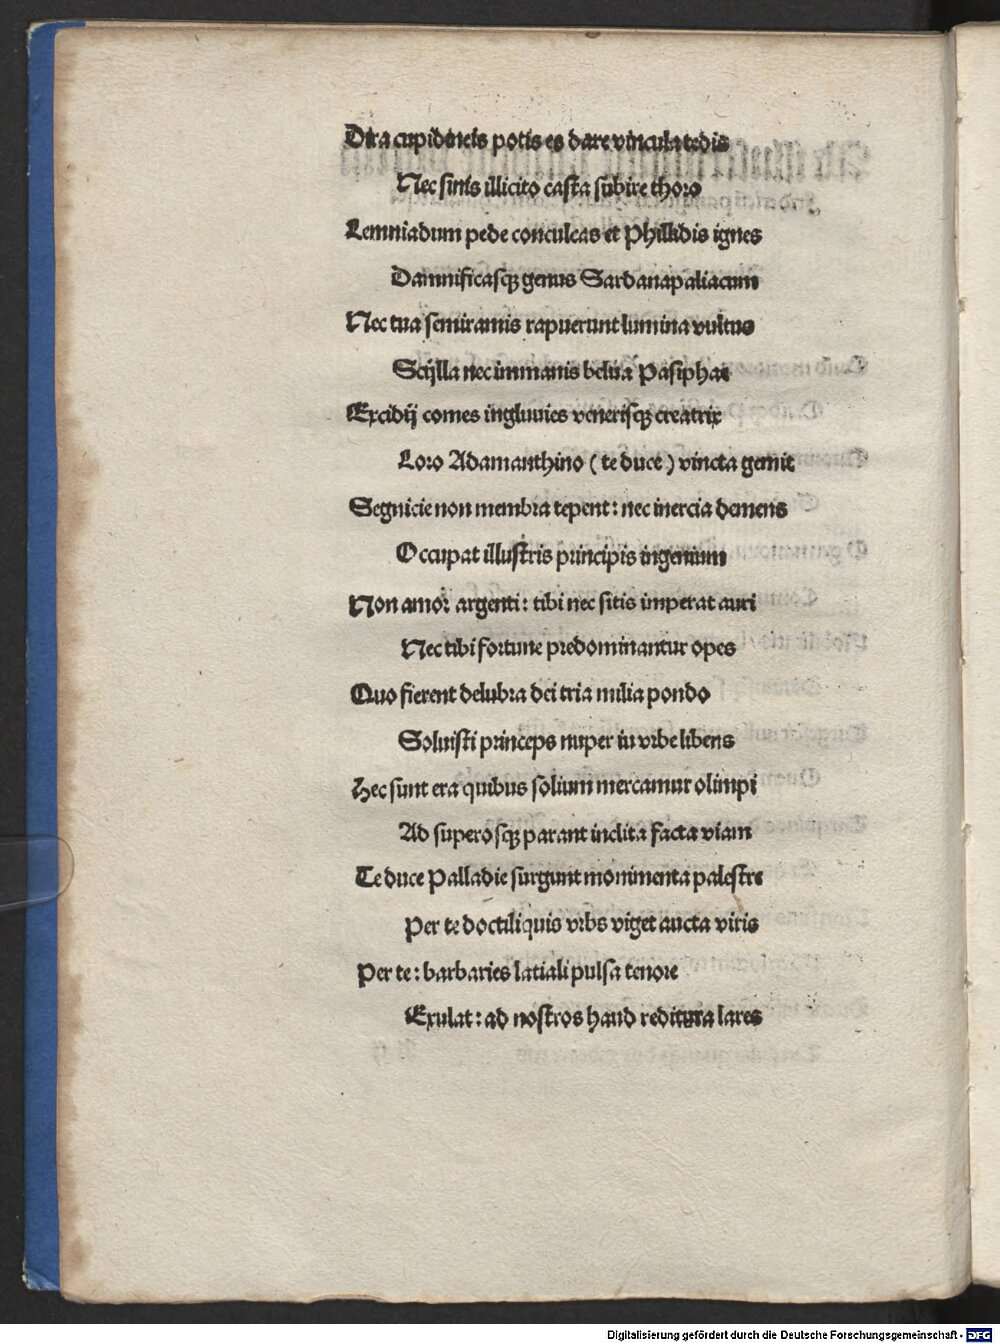 Dira cupidineis potis es dare vincula tedis
Nec sinis illicito casta subire thoro
Lemniadum pede conculcas et Phillidis ignes
Damnificasqꝫ genus Sardanapaliacum
Nec tua semiramis rapuerunt lumina vultus
Scijlla nec immanis belua Pasiphae
Excidij comes ingluvies venerisqꝫ creatrix
Loro Adamanthino ( te duce ) vincta gemit
Segnicie non membra tepent: nec inercia demens
Occupat illustris principis ingenium
Non amor argenti: tibi nec sitis imperat auri
Nec tibi fortune predominantur opes
Quo fierent delubra dei tria milia pondo
Soluisti princeps nuper in vrbe libens
Hec sunt era quibus solium mercamur olimpi
Ad superosqꝫ parant inclita facta viam
Te duce Palladie surgunt monimenta palestre
Per te doctiliquis vrbs viget aucta viris
Per te: barbaries latiali pulsa tenore
Exulat: ad nostros haud reditura lares
Digitalisierung gefördert durch die Deutsche Forschungsgemeinschaft - DFG